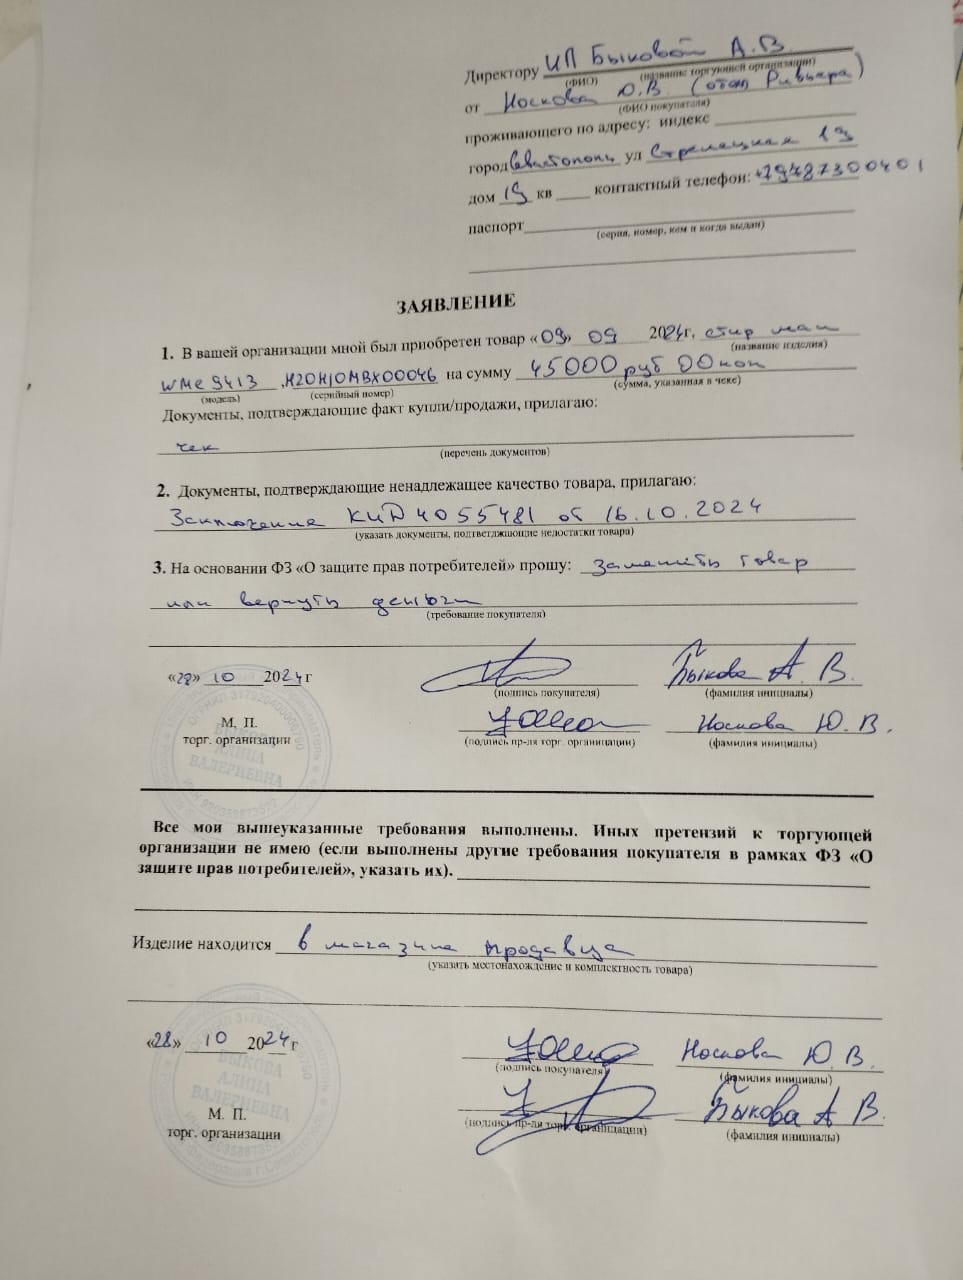 Директору ИП Быковой А.В.
(ФИО) (название торгующей организации)
от Носкова Ю.В. (отель Ривьера)
(ФИО покупателя)
проживающего по адресу: индекс
город Севастополь ул Стрелецкая 19
дом 19 кв контактный телефон:
паспорт
(серия, номер, кем и когда выдан)
ЗАЯВЛЕНИЕ
1. В вашей организации мной был приобретен товар «09» 09 2024г, стир маш
(название изделия)
WMC 9413 на сумму 45000 руб 00 коп
(модель) (серийный номер) (сумма, указанная в чеке)
Документы, подтверждающие факт купли/продажи, прилагаю:
чек
(перечень документов)
2. Документы, подтверждающие ненадлежащее качество товара, прилагаю:
Заключение КИД 4055481 от 16.10.2024
(указать документы, подтверждающие недостатки товара)
3. На основании ФЗ «О защите прав потребителей» прошу: заменить товар
или вернуть деньги
(требование покупателя)
«28» 10 2024г Быкова А. В.
(подпись покупателя) (фамилия инициалы)
М. П. Носкова Ю. В.
торг. организации (подпись пр-ля торг. организации) (фамилия инициалы)
БЫКОВА
АЛИНА
ВАЛЕРИЕВНА
Все мои вышеуказанные требования выполнены. Иных претензий к торгующей
организации не имею (если выполнены другие требования покупателя в рамках ФЗ «О
защите прав потребителей», указать их).
Изделие находится в магазине продавца
(указать местонахождение и комплектность товара)
«28» 10 2024г Носкова Ю. В.
(подпись покупателя) (фамилия инициалы)
БЫКОВА
АЛИНА
ВАЛЕРИЕВНА
М. П. Быкова А. В.
торг. организации (подпись пр-ля торг. организации) (фамилия инициалы)